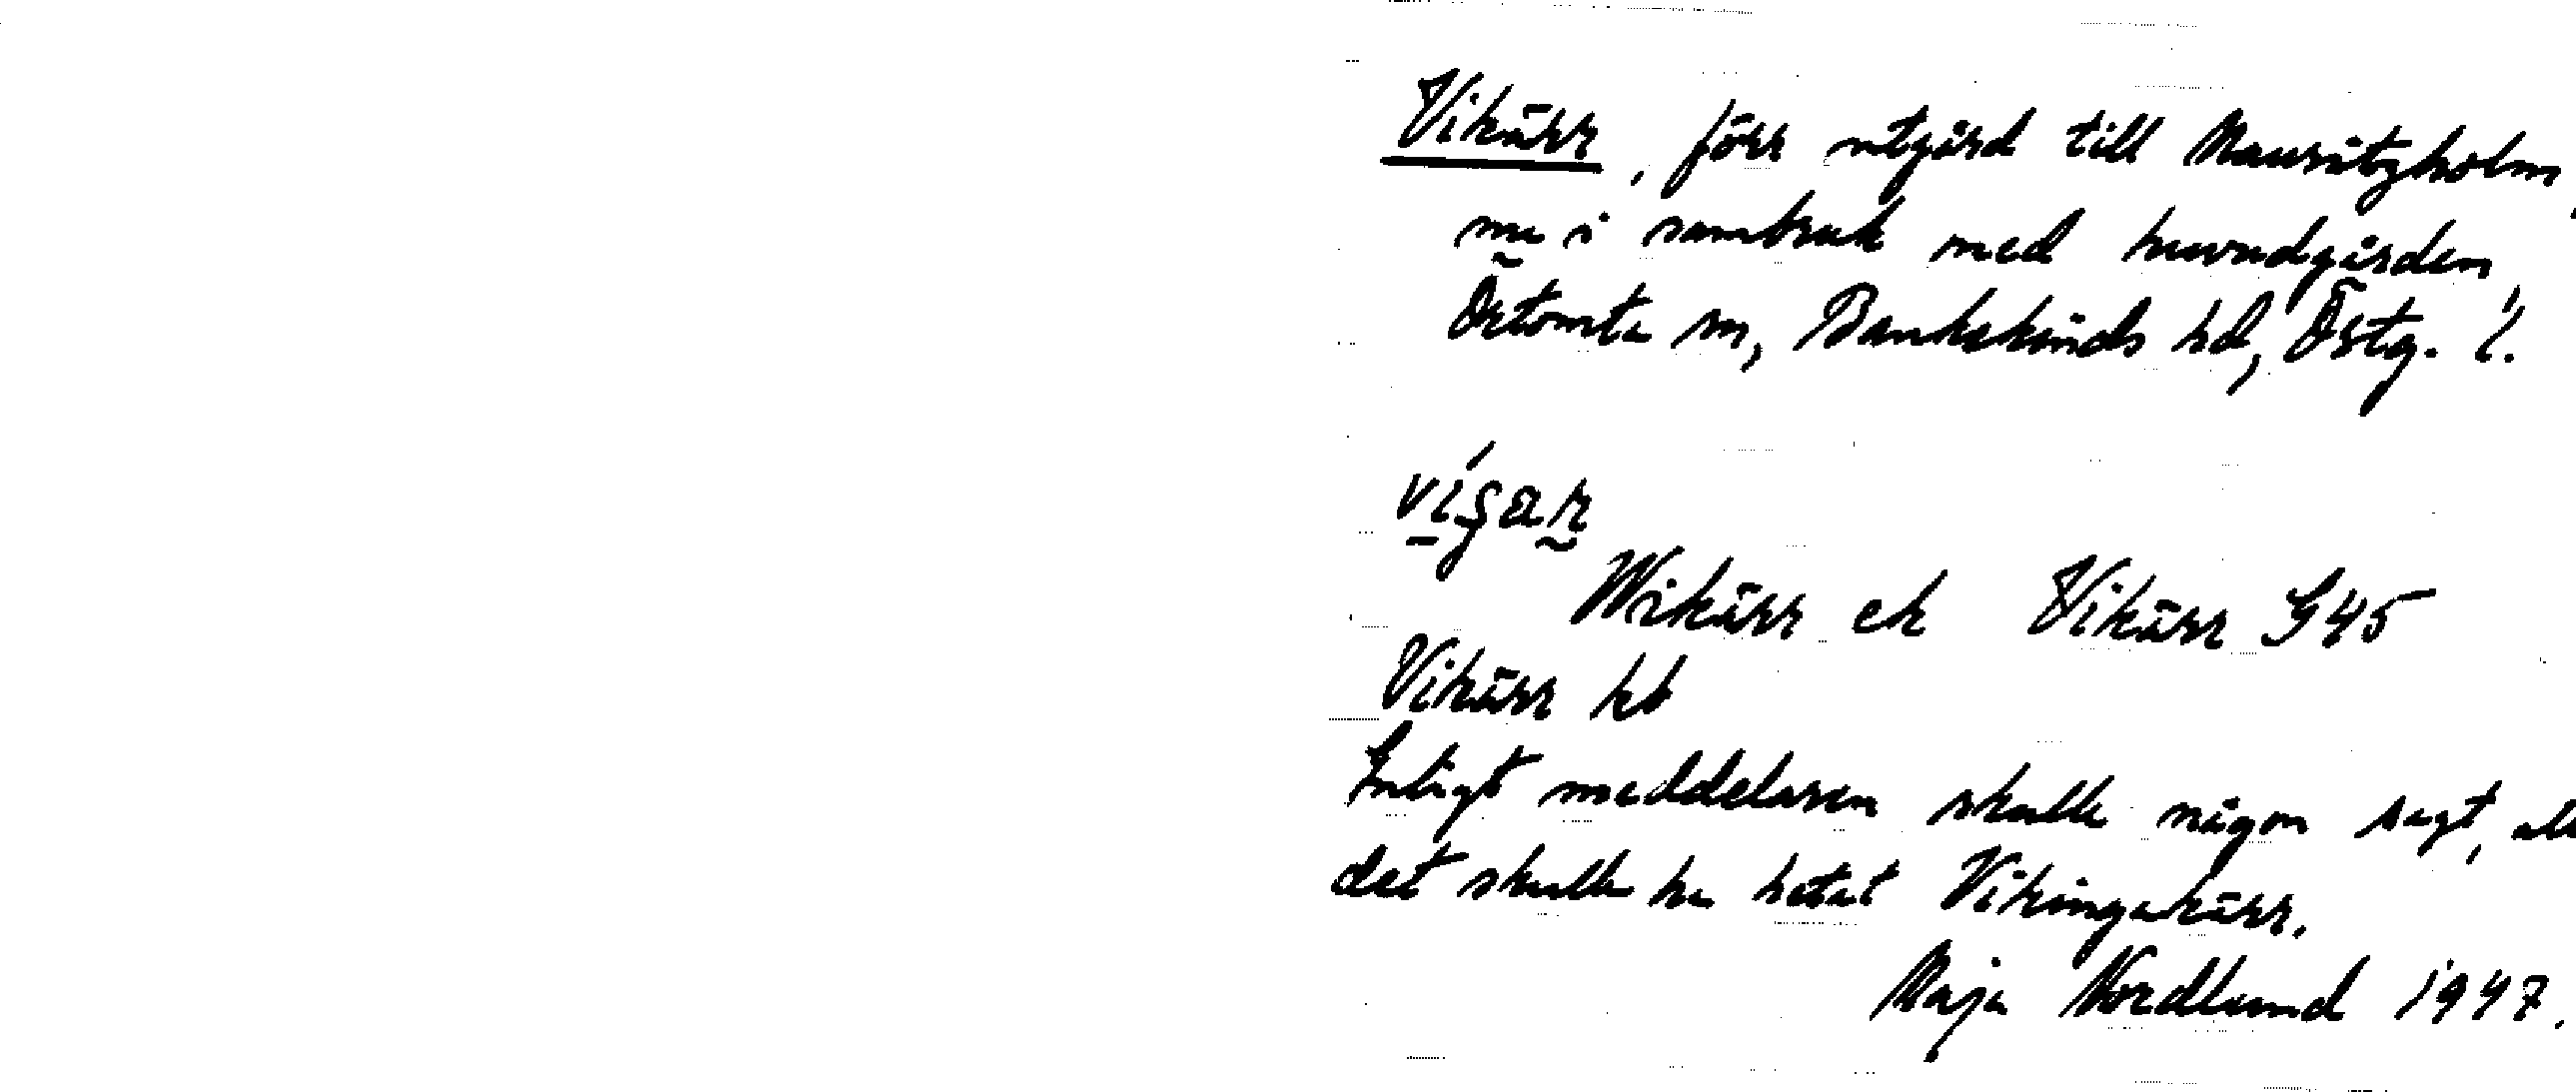 Vikärr, förr utgård till Mauritzholm,
nu i sambruk med huvudgården,
Örtomta sn, Bankekinds hd, Östg. l.
Wikärr ek Vikärr G45
Vikärr kb
Enligt meddelaren skulle någon sagt, att
det skulle ha hetat Vikingakärr.
Maja Nordlund 1947.